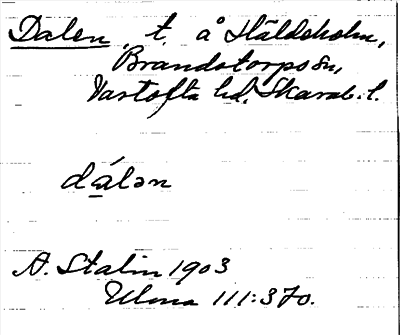 Dalen, t. å Håldeholm,
Brandstorps sn,
Vartofta hd, Skarab. l.
dálən
A. Stalin 1903
Ulma 111:370.